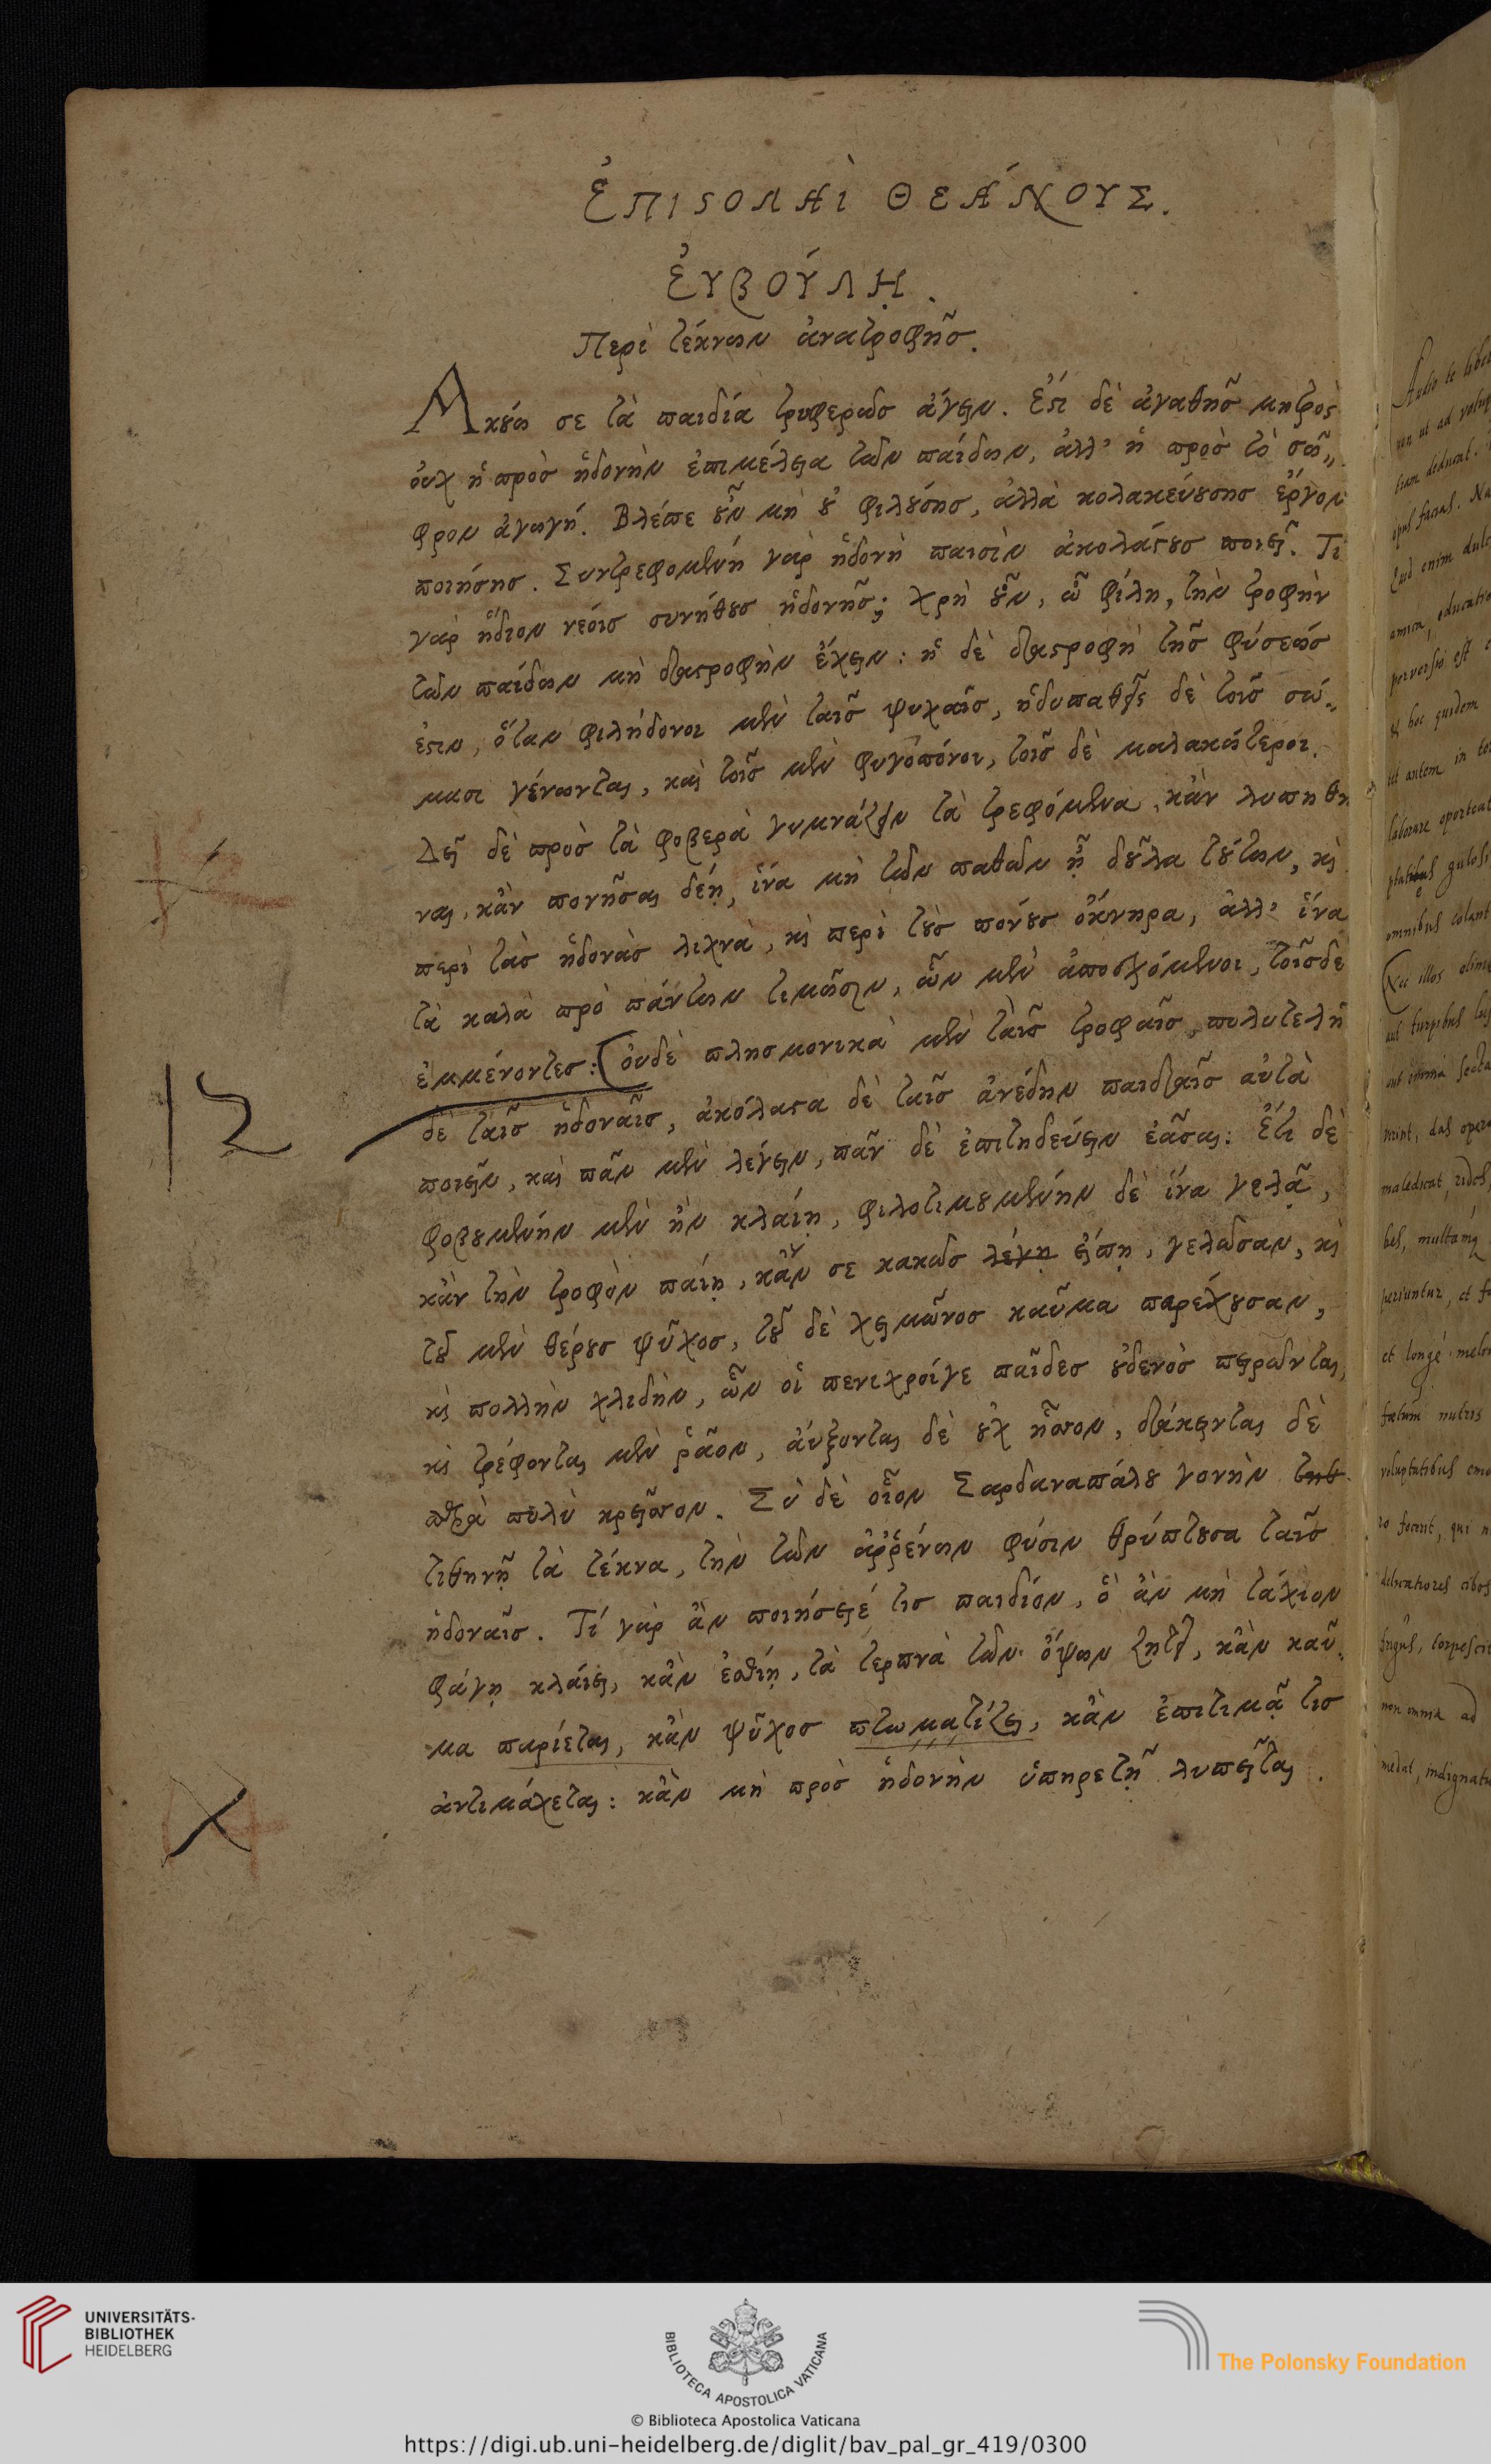 Ἐπιϛολαὶ Θεάνους.
Ἐυβούλῃ.
Περὶ τέκνων ἀνατροφῆς.
Ακούω σε τὰ παιδία τρυφερῶς ἄγειν. Ἔϛι δὲ ἀγαθῆς μητρὸς
ὀυχ ἡ πρὸς ἡδονὴν ἐπιμέλεια τῶν παίδων, ἀλλ' ἡ πρὸς τὸ σῶ„
φρον ἀγωγή. Βλέπε οὖν μὴ οὐ φιλούσης, ἀλλὰ κολακεύουσης ἔργον
ποιήσης. Συντρεφομένη γὰρ ἡδονὴ παισὶν ἀκολάϛους ποιεῖ. Τί
γὰρ ἥδιον νέοις συνήθους ἡδονῆς; χρὴ οὖν, ὦ φίλη, τὴν τροφὴν
τῶν παίδων μὴ διαϛροφὴν ἔχειν: ἡ δὲ διαϛροφὴ τῆς φύσεώς
ἐϛιν, ὅταν φιλήδονοι μὲν ταῖς ψυχαῖς, ἡδυπαθεῖς δὲ τοῖς σώ„
μασι γένωνται, καὶ τοῖς μὲν φυγόπονοι, τοῖς δὲ μαλακώτεροι.
Δεῖ δὲ πρὸς τὰ φοβερὰ γυμνάζειν τὰ τρεφόμενα, κἂν λυπηθῆ
ναι, κἂν πονῆσαι δέῃ, ἵνα μὴ τῶν παθῶν ᾖ δοῦλα τούτων, καὶ
περὶ τὰς ἡδονὰς λιχνὰ, καὶ περὶ τοὺς πόνους ὄκνηρα, ἀλλ' ἵνα
τὰ καλὰ πρὸ πάντων τιμῶσιν, ὧν μὲν ἀποσχόμενοι, τοῖσδὲ
ἐμμένοντες: (ὀυδὲ πλησμονικὰ μὲν τὰῖς τροφαῖς, πολυτελῆ
12
δὲ ταῖς ἡδοναῖς, ἀκόλαϛα δὲ ταῖς ἀνέδην παιδιαῖς αὐτὰ
ποιεῖν, καὶ πᾶν μὲν λέγειν, πᾶν δὲ ἐπιτηδεύειν ἐᾶσαι: Ἔτι δὲ
φοβουμένην μὲν ἢν κλαίῃ, φιλοτιμουμένην δὲ ἵνα γελᾷ,
κἂν τὴν τροφὸν παίῃ, κἄν σε κακῶς λέγῃ εἴπῃ, γελῶσαν, καὶ
τοῦ μὲν θέρους ψῦχος, τοῦ δὲ χειμῶνος καῦμα παρέχουσαν,
καὶ πολλὴν χλιδὴν, ὧν οἱ πενιχροίγε παῖδες οὐδενὸς πειρῶνται,
καὶ τρέφονται μὲν ῥᾶον, ἀύξονται δὲ οὐχ ἧττον, διάκεινται δὲ
παρὰ πολὺ κρεῖττον. Σὺ δὲ οἷον Σαρδαναπάλου γονὴν τιθ
τιθηνῇ τὰ τέκνα, τὴν τῶν ἀῤῥένων φύσιν θρύπτουσα ταῖς
ἡδοναῖς. Τί γὰρ ἂν ποιήσειέ τις παιδίον, ὃ ἂν μὴ τάχιον
φάγῃ κλάιει, κἂν ἐσθίῃ, τὰ τερπνὰ τῶν ὄψων ζητεῖ, κἂν καῦ„
μα παρίεται, κἂν ψῦχος πτωματίζει, κἂν ἐπιτιμᾷ τις
ἀντιμάχεται: κἂν μὴ πρὸς ἡδονὴν ὑπηρετῇ λυπεῖται.
Audio te liber
non ut ad volup
tiam deducat.
opus facias. Na
Quid enim dulc
amica, educatio
perversio est
et hoc quidem
ut autem in te
laborare oporteat
omnibus colant
(Nec illos
maledicat, rides,
et longé melio
voluptatibus
delicatiores cibos
frigus, torpescit
non omnia ad
medat, indignatu
UNIVERSITÄTS-
BIBLIOTHEK
HEIDELBERG
BIBLIOTECA APOSTOLICA VATICANA
The Polonsky Foundation
© Biblioteca Apostolica Vaticana
https://digi.ub.uni-heidelberg.de/diglit/bav_pal_gr_419/0300